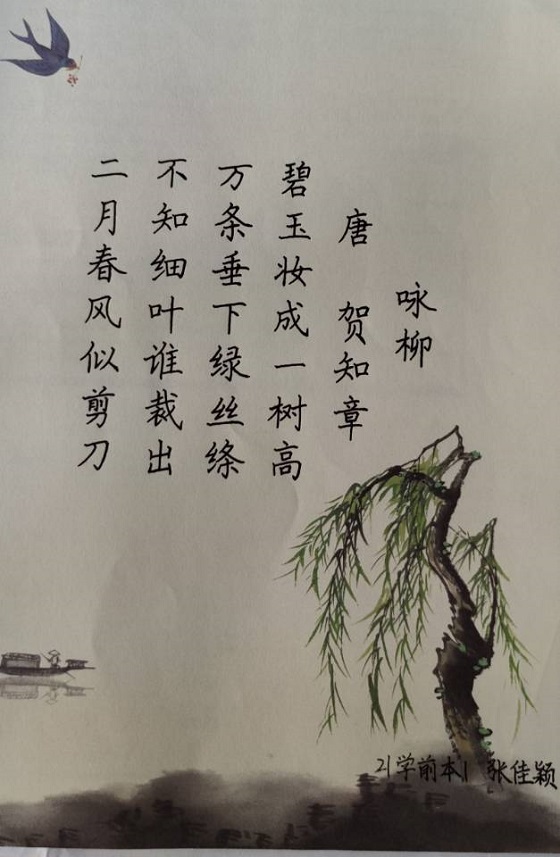 咏柳
唐 贺知章
碧玉妆成一树高
万条垂下绿丝绦
不知细叶谁裁出
二月春风似剪刀
21学前本1 张佳颖